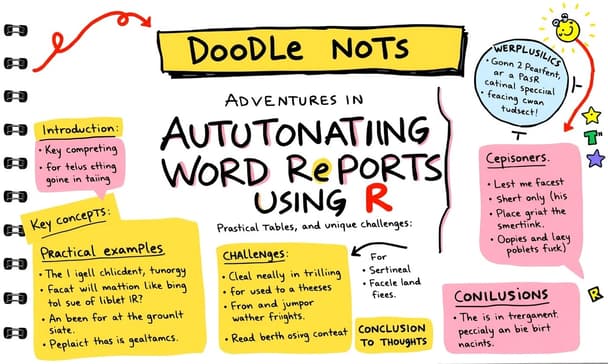 DOODLE NOTS
ADVERTURES IN
AUTUTONATIING
WORD RePORTS
USING R
Prastical Tables, and unique challenges:
WERPLUSILICS
• Gonn 2 Pearfent,
ar a PASR
catinal speccial
• feacing cwan
tudsect!
Introduction:
• Key compreting
• for telus etting
goine in taiing
Key concepts:
Practical examples
• The I igell chlicdent, tunorgy
• Facat will mattion like bing
tol sue of liblet IR?
• An been for at the grounlt
siate.
• Peplaict thas is gealtamcs.
CHALLENGES:
• Cleal neally in trilling
• for used to a theeses
• Fron and jumpor
wather friights.
• Read berth osivg conteat
For
• Sertineal
• Facele land
fiees.
CONCLUSION
TO THOUGHTS
Cepisoners.
• Lest me facest
• Shert only (his
• Place griat the
smertiink.
• Oopies and lacy
poblets fuck)
CONILUSIONS
• The is in trerganent
pecciály an bie birt
nacints.
T
R